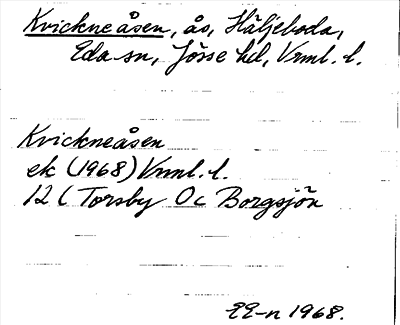 Kvickneåsen, ås, Häljeboda,
Eda sn, Jösse hd, Vrml. l.
Kvickneåsen
ek (1968) Vrml. l.
12 C Torsby Oc Borgsjön
EE-n 1968.